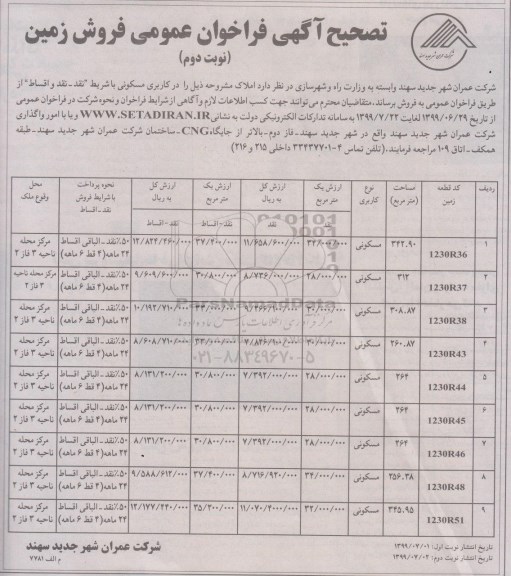 تصحیح آگهی فراخوان عمومی فروش زمین
(نوبت دوم)
شرکت عمران شهر جدید سهند وابسته به وزارت راه و شهرسازی در نظر دارد املاک مشروحه ذیل را در کاربری مسکونی با شرایط "نقد - نقد و اقساط" از
طریق فراخوان عمومی به فروش برساند، متقاضیان محترم می‌توانند جهت کسب اطلاعات لازم و آگاهی از شرایط فراخوان و نحوه شرکت در فراخوان عمومی
از تاریخ ۱۳۹۹/۰۶/۲۹ لغایت ۱۳۹۹/۷/۲۲ به سامانه تدارکات الکترونیکی دولت به نشانی WWW.SETADIRAN.IR و یا با امور واگذاری
شرکت عمران شهر جدید سهند واقع در شهر جدید سهند - فاز دوم - بالاتر از جایگاه CNG - ساختمان شرکت عمران شهر جدید سهند - طبقه
همکف - اتاق ۱۰۹ مراجعه فرمایند. (تلفن تماس ۴-۳۳۴۳۷۷۰۱ داخلی ۲۱۵ و ۲۱۶)
ردیف | کد قطعه زمین | مساحت (متر مربع) | نوع کاربری | ارزش یک متر مربع نقد | ارزش کل به ریال نقد | ارزش یک متر مربع نقد - اقساط | ارزش کل به ریال نقد - اقساط | نحوه پرداخت با شرایط فروش نقد - اقساط | محل وقوع ملک
۱ 1230R36 ۳۴۲.۹۰ مسکونی ۳۴/۰۰۰/۰۰۰ ۱۱/۶۵۸/۶۰۰/۰۰۰ ۳۷/۴۰۰/۰۰۰ ۱۲/۸۲۴/۴۶۰/۰۰۰ ۵۰٪ نقد - الباقی اقساط ۲۴ ماهه (۴ قسط ۶ ماهه) مرکز محله ناحیه ۳ فاز ۲
۲ 1230R37 ۳۱۲ مسکونی ۲۸/۰۰۰/۰۰۰ ۸/۷۳۶/۰۰۰/۰۰۰ ۳۰/۸۰۰/۰۰۰ ۹/۶۰۹/۶۰۰/۰۰۰ ۵۰٪ نقد - الباقی اقساط ۲۴ ماهه (۴ قسط ۶ ماهه) مرکز محله ناحیه ۳ فاز ۲
۳ 1230R38 ۳۰۸.۸۷ مسکونی ۳۰/۰۰۰/۰۰۰ ۳۳/۰۰۰/۰۰۰ ۱۰/۱۹۲/۷۱۰/۰۰۰ ۵۰٪ نقد - الباقی اقساط ۲۴ ماهه (۴ قسط ۶ ماهه) مرکز محله ناحیه ۳ فاز ۲
۴ 1230R43 ۲۶۰.۸۷ مسکونی ۳۰/۰۰۰/۰۰۰ ۷/۸۲۶/۱۰۰/۰۰۰ ۳۳/۰۰۰/۰۰۰ ۸/۶۰۸/۷۱۰/۰۰۰ ۵۰٪ نقد - الباقی اقساط ۲۴ ماهه (۴ قسط ۶ ماهه) مرکز محله ناحیه ۳ فاز ۲
۵ 1230R44 ۲۶۴ مسکونی ۲۸/۰۰۰/۰۰۰ ۷/۳۹۲/۰۰۰/۰۰۰ ۳۰/۸۰۰/۰۰۰ ۸/۱۳۱/۲۰۰/۰۰۰ ۵۰٪ نقد - الباقی اقساط ۲۴ ماهه (۴ قسط ۶ ماهه) مرکز محله ناحیه ۳ فاز ۲
۶ 1230R45 ۲۶۴ مسکونی ۲۸/۰۰۰/۰۰۰ ۷/۳۹۲/۰۰۰/۰۰۰ ۳۰/۸۰۰/۰۰۰ ۸/۱۳۱/۲۰۰/۰۰۰ ۵۰٪ نقد - الباقی اقساط ۲۴ ماهه (۴ قسط ۶ ماهه) مرکز محله ناحیه ۳ فاز ۲
۷ 1230R46 ۲۶۴ مسکونی ۲۸/۰۰۰/۰۰۰ ۷/۳۹۲/۰۰۰/۰۰۰ ۳۰/۸۰۰/۰۰۰ ۸/۱۳۱/۲۰۰/۰۰۰ ۵۰٪ نقد - الباقی اقساط ۲۴ ماهه (۴ قسط ۶ ماهه) مرکز محله ناحیه ۳ فاز ۲
۸ 1230R48 ۲۵۶.۳۸ مسکونی ۳۴/۰۰۰/۰۰۰ ۸/۷۱۶/۹۲۰/۰۰۰ ۳۷/۴۰۰/۰۰۰ ۹/۵۸۸/۶۱۲/۰۰۰ ۵۰٪ نقد - الباقی اقساط ۲۴ ماهه (۴ قسط ۶ ماهه) مرکز محله ناحیه ۳ فاز ۲
۹ 1230R51 ۳۴۵.۹۵ مسکونی ۳۲/۰۰۰/۰۰۰ ۱۱/۰۷۰/۴۰۰/۰۰۰ ۳۵/۲۰۰/۰۰۰ ۱۲/۱۷۷/۴۴۰/۰۰۰ ۵۰٪ نقد - الباقی اقساط ۲۴ ماهه (۴ قسط ۶ ماهه) مرکز محله ناحیه ۳ فاز ۲
ParsNamadData
۰۲۱-۸۸۳۴۹۶۷۰-۵
تاریخ انتشار نوبت اول: ۱۳۹۹/۰۷/۰۱
تاریخ انتشار نوبت دوم: ۱۳۹۹/۰۷/۰۲
شرکت عمران شهر جدید سهند
م الف ۷۷۸۱